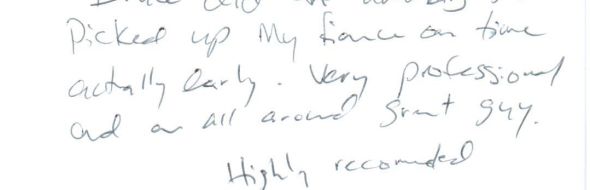 Picked up My fiance on time
actually early. Very professional
and an all around great guy.
Highly recomended